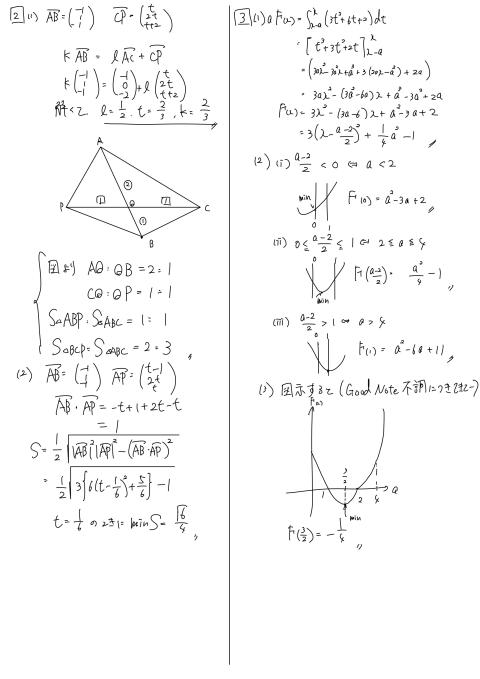 2 (1) AB = (-1 1 1) CP = (t 2t t+2)
k AB = l AC + CP
k (-1 1 1) = (-1 0 -2) + l (t 2t t+2)
解くて l = 1/2, t = 2/3, k = 2/3
A
②
P 1 Q 1 C
①
B
図より AQ : QB = 2 : 1
CQ : QP = 1 : 1
S△ABP : S△ABC = 1 : 1
S△BCP : S△ABC = 2 : 3
(2) AB = (-1 1 1) AP = (t-1 2t t)
AB · AP = -t+1+2t-t
= 1
S = 1/2 √|AB|²|AP|² - (AB·AP)²
= 1/2 √3{6(t-1/6)²+5/6} - 1
t = 1/6 のときに min S = √6/4
3 (1) a F(x) = ∫_{x-a}^{x} (3t²+6t+2) dt
= [t³+3t²+2t]_{x-a}^{x}
= (3ax²-3a²x+a³+3(2ax-a²)+2a)
= 3ax² - (3a²-6a)x + a³-3a²+2a
F(x) = 3x² - (3a-6)x + a²-3a+2
= 3(x - a-2/2)² + 1/4 a² - 1
(2) (i) a-2/2 < 0 ⇔ a < 2
min
F(0) = a²-3a+2
0 1
(ii) 0 ≤ a-2/2 ≤ 1 ⇔ 2 ≤ a ≤ 4
F(a-2/2) = a²/4 - 1
min
(iii) a-2/2 > 1 ⇔ a > 4
F(1) = a²-6a+11
0 1
(3) 図示すると (Good Note 不調につききたない)
F(x)
3/2
1 2 4 a
min
F(3/2) = -1/4